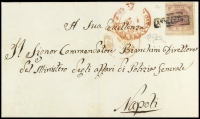 A Sua Eccellenza
Il Signor Commendatore Bianchini Direttore
del Ministero degli affari di Polizia Generale
Napoli